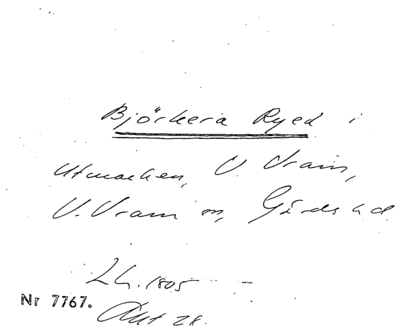 Björkera Ryed i
Utmarken, V. Vram,
V. Vram sn, Gärds hd
L h. 1805
Nr 7767. Akt 28.